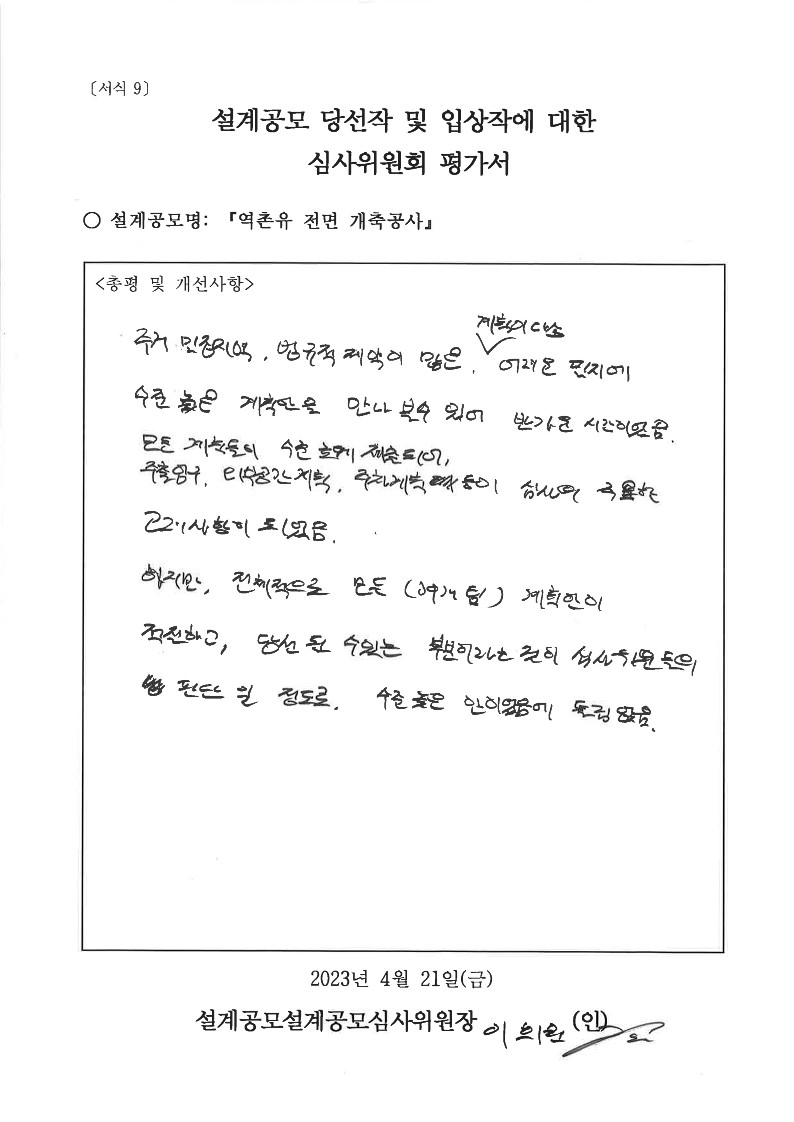 〔서식 9〕
설계공모 당선작 및 입상작에 대한
심사위원회 평가서
○ 설계공모명: 『역촌유 전면 개축공사』
<총평 및 개선사항>
계획이 다소
주거 밀집지역, 법규적 제약이 많은, 어려운 필지에
수준 높은 계획안을 만나 볼수 있어 반가운 시간이었음.
모든 계획들이 수준 높게 제출되어,
주출입구, 외부공간계획, 주차계획 등이 심사의 중요한
고려사항이 되었음.
하지만, 전체적으로 모든 ( 팀) 계획안이
적절하고, 당선 될 수있는 부분이라는 것이 심사위원들의
판단 일 정도로, 수준 높은 안이었음에 틀림 없음.
2023년 4월 21일(금)
설계공모설계공모심사위원장 이 의 (인)